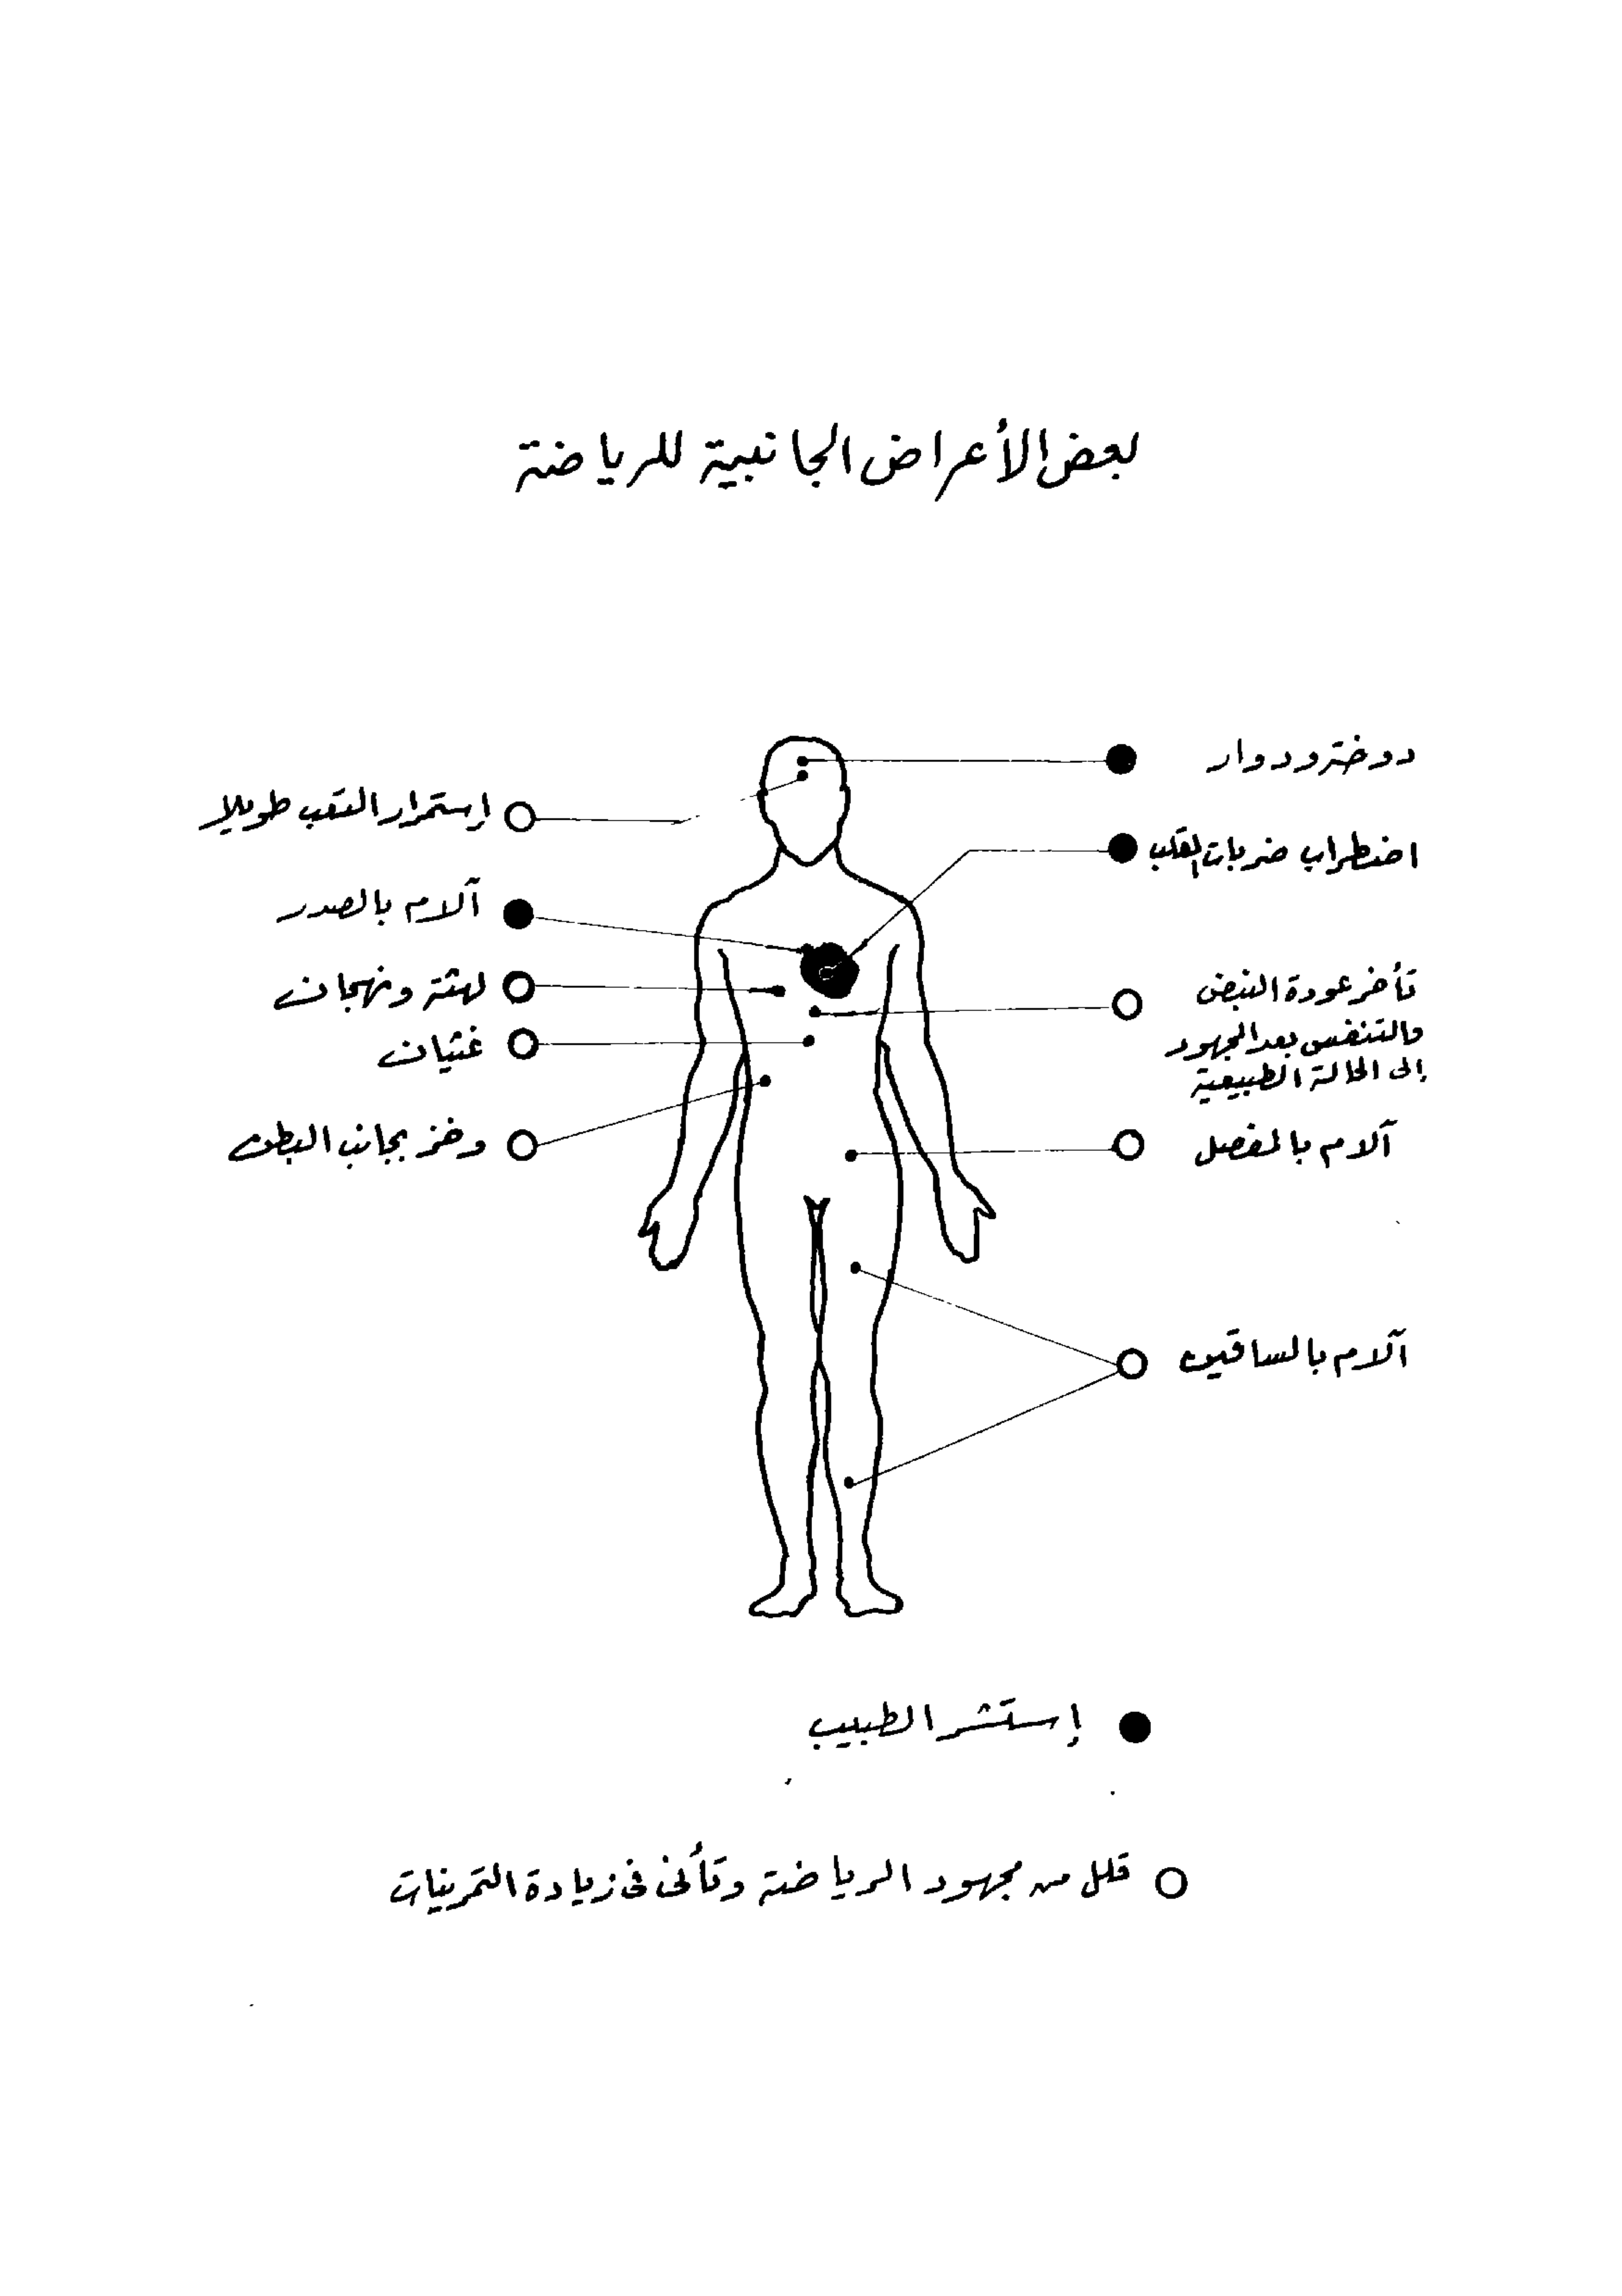 بعض الأعراض الجانبية للرياضة
دوخة ودوار
إستمرار التعب طويلا
اضطراب ضربات القلب
آلام بالصدر
تأخر عودة النبض
والتنفس بعد المجهود
إلى الحالة الطبيعية
لهثة ونهجان
غثيان
وخز بجانب البطن
آلام بالمفصل
آلام بالساقين
إستشر الطبيب
قلل من مجهود الرياضة وتأنى فى زيادة التمرينات